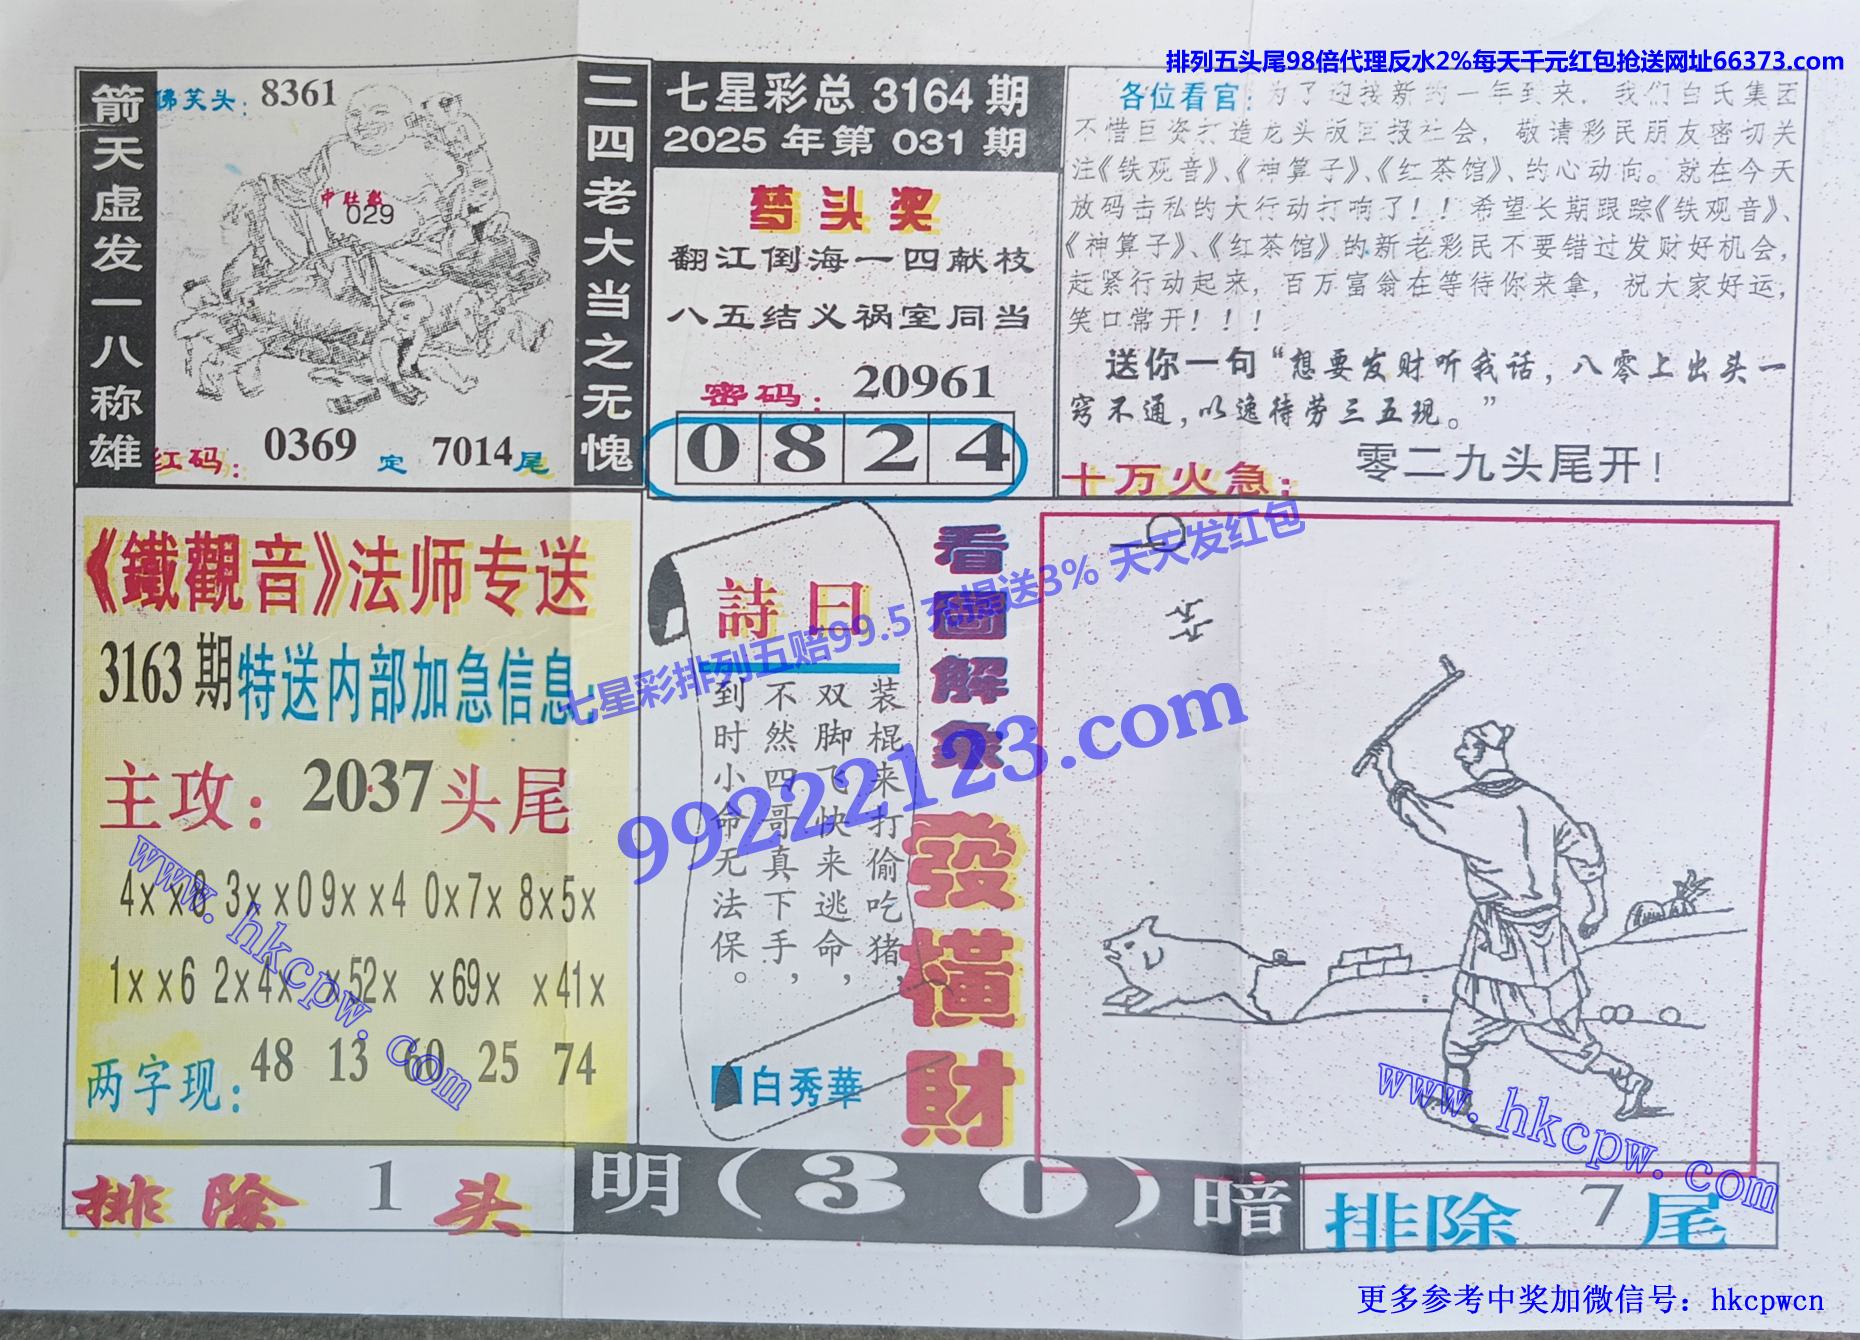 排列五头尾98倍代理反水2%每天千元红包抢送网址66373.com
箭天虚发一八称雄
佛笑头：8361
中肚数
029
红码：0369 定 7014尾
二四老大当之无愧
七星彩总 3164 期
2025 年第 031 期
梦头奖
翻江倒海一四献枝
八五结义祸室同当
密码：20961
0 8 2 4
各位看官：为了迎接新的一年到来，我们白氏集团
不惜巨资打造龙头版回报社会，敬请彩民朋友密切关
注《铁观音》、《神算子》、《红茶馆》、的心动向。就在今天
放码击私的大行动打响了！！希望长期跟踪《铁观音》、
《神算子》、《红茶馆》的新老彩民不要错过发财好机会，
赶紧行动起来，百万富翁在等待你来拿，祝大家好运，
笑口常开！！！
送你一句“想要发财听我话，八零上出头一
窍不通，以逸待劳三五现。”
十万火急：零二九头尾开！
《鐵觀音》法师专送
3163期特送内部加急信息
主攻：2037头尾
4××8 3××0 9××4 0×7× 8×5×
1××6 2×4× ×52× ×69× ×41×
两字现：48 13 60 25 74
詩曰
装棍来打偷吃猪，
双脚飞快来逃命，
不然四哥真下手，
到时小命无法保。
白秀華
看圖解象
發橫財
七星彩排列五赔99.5 充提送3% 天天发红包
99222123.com
www.hkcpw.com
www.hkcpw.com
排除 1 头
明（3 0）暗
排除 7 尾
更多参考中奖加微信号：hkcpwcn